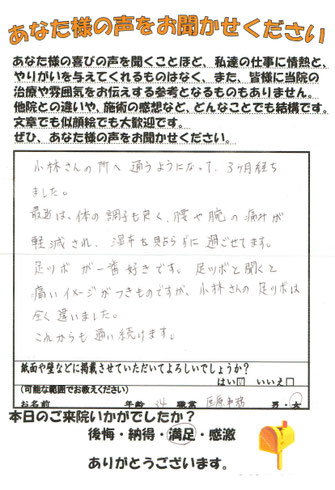 あなた様の声をお聞かせください
あなた様の喜びの声を聞くことほど、私達の仕事に情熱と、
やりがいを与えてくれるものはなく、また、皆様に当院の
治療や雰囲気をお伝えする参考となるものもありません。
他院との違いや、施術の感想など、どんなことでも結構です。
文章でも似顔絵でも大歓迎です。
ぜひ、あなた様の声をお聞かせください。
小林さんの所へ通うようになって、3ヶ月経ち
ました。
最近は、体の調子も良く、腰や腕の痛みが
軽減され、湿布を貼らずに過ごせてます。
足ツボが一番好きです。足ツボと聞くと
痛いイメージがつきものですが、小林さんの足ツボは
全く違いました。
これからも通い続けます。
紙面や壁などに掲載させていただいてよろしいでしょうか？
はい☑ いいえ□
(可能な範囲でお教えください)
お名前 年齢 34 職業 医療事務 男・女
本日のご来院いかがでしたか？
後悔・納得・満足・感激
ありがとうございます。